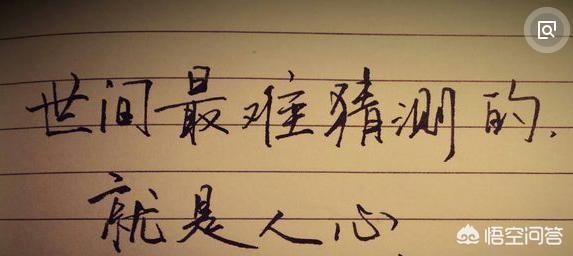 世间最难猜测的.
就是人心
悟空问答